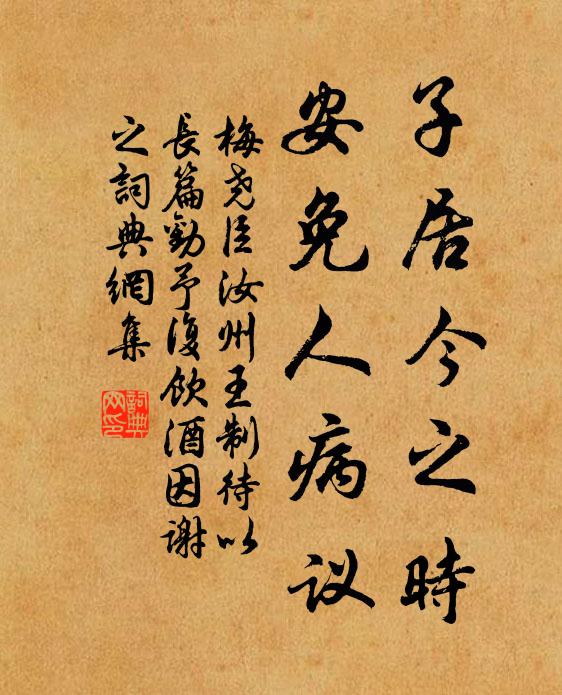 子居今之時
安免人病议
梅尧臣汝州王制待以
長篇勸予復飲酒因谢
之詞典網集
詞典
网印